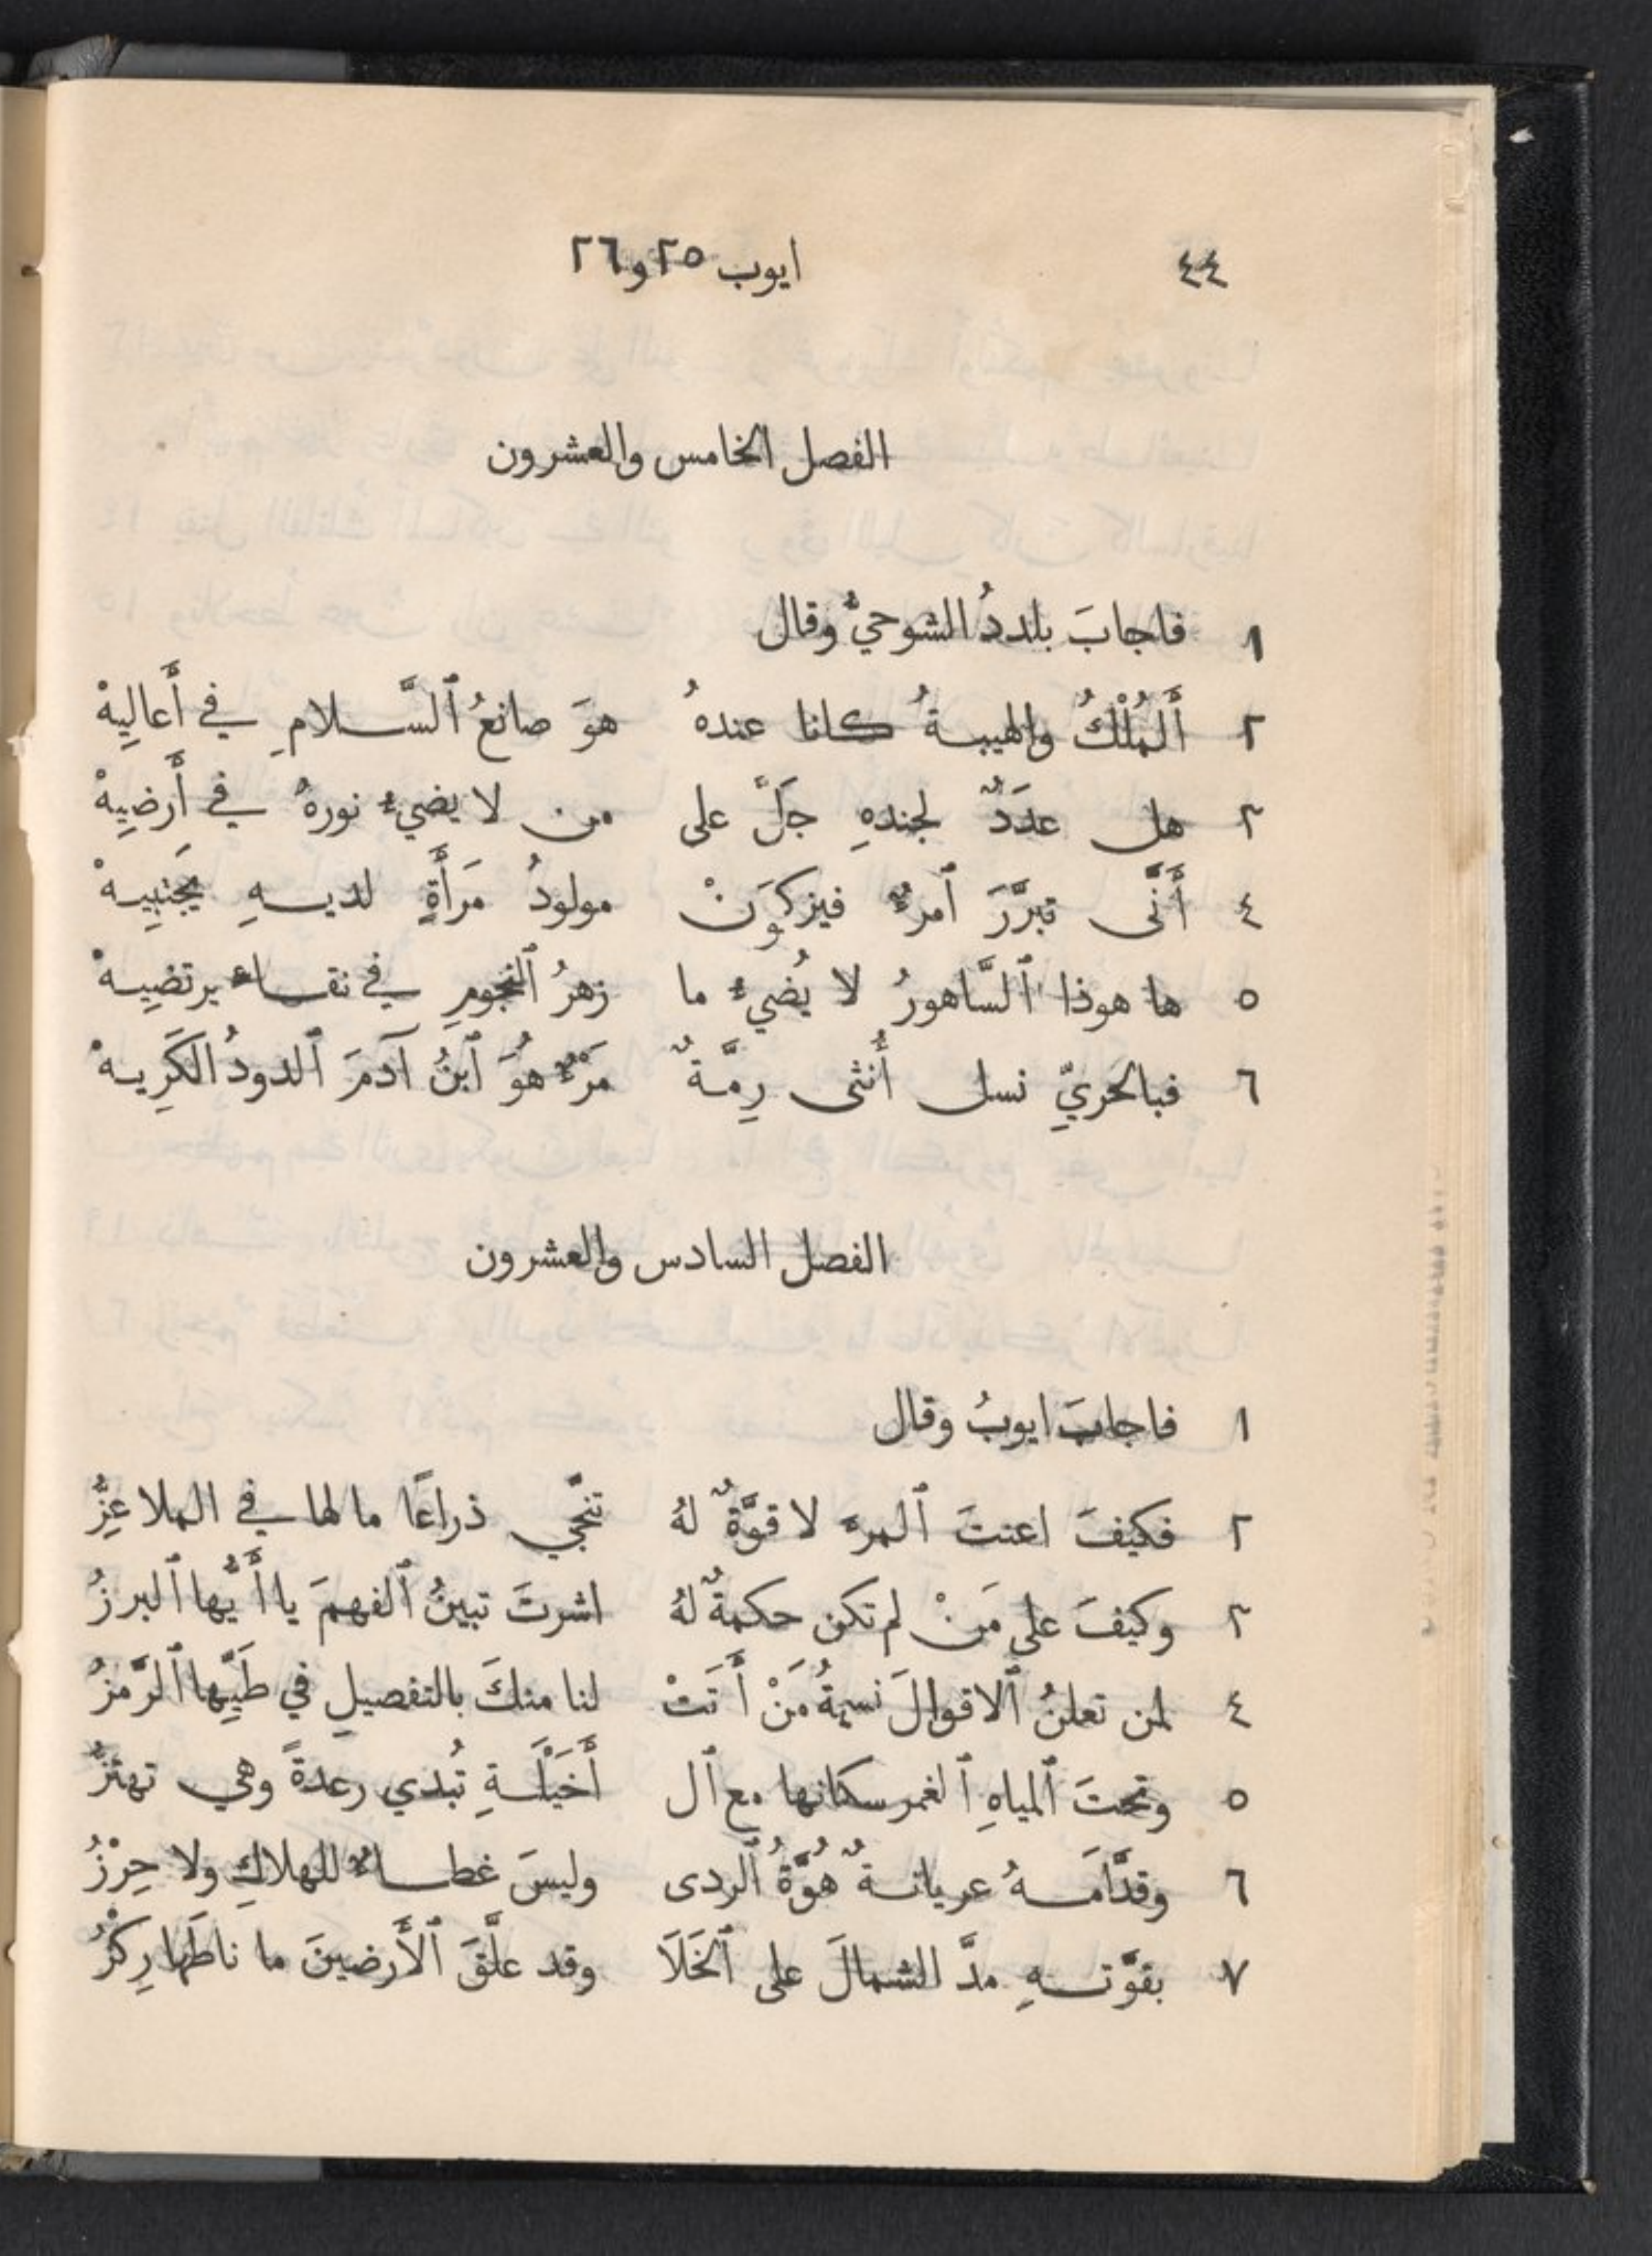 ٤٤ ايوب ٢٥ و٢٦
الفصل الخامس والعشرون
١ فاجابَ بلددُ الشوحيُّ وقال
٢ أَلمُلْكُ والهيبةُ كانا عندهُ هوَ صانعُ ٱلسَّلامِ في أَعالِيهْ
٣ هل عدَدٌ لجندهِ جَلَّ على من لا يضيءُ نورهُ في أَرضِيهْ
٤ أَنَّى تبرَّرَ ٱمرءٌ فيزكوَنْ مولودُ مَرأَةٍ لديهِ يجَتبِيهْ
٥ ها هوذا ٱلسَّاهورُ لا يُضيءُ ما زهرُ ٱلنجومِ في نقاء يرتضِيهْ
٦ فبالحريّ نسل أُنثى رِمَّةٌ مَرْءٌ هُوَ ٱبنُ آدمَ ٱلدودُ الكَرِيهْ
الفصل السادس والعشرون
١ فاجابَ ايوبُ وقال
٢ فكيفَ اعنتَ ٱلمرء لا قوَّةٌ لهُ تنجّي ذراعًا ما لها في الملا عِزُّ
٣ وكيفَ على مَنْ لم تكن حكمةٌ لهُ اشرتَ تبينُ ٱلفهمَ يا أَيُّها ٱلبرزُ
٤ لمن تعلنُ ٱلاقوالَ نسمةُ مَنْ أَتَتْ لنا منكَ بالتفصيلِ في طَيِّها ٱلرَّمزُ
٥ وتحتَ ٱلمياهِ ٱلغمر سكانها مع ٱل أَخيَلَةِ تُبدي رعدةً وهي تهتزُّ
٦ وقدَّامَهُ عريانةٌ هُوَّةُ ٱلردى وليسَ غطاءٌ للهلاكِ ولا حِرْزُ
٧ بقوَّتهِ مدَّ الشمالَ على ٱلخَلَا وقد علَّقَ ٱلأَرضينَ ما ناطَها رِكْزُ